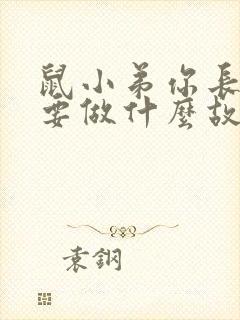 鼠小弟你長
要做什麼故
袁鋼